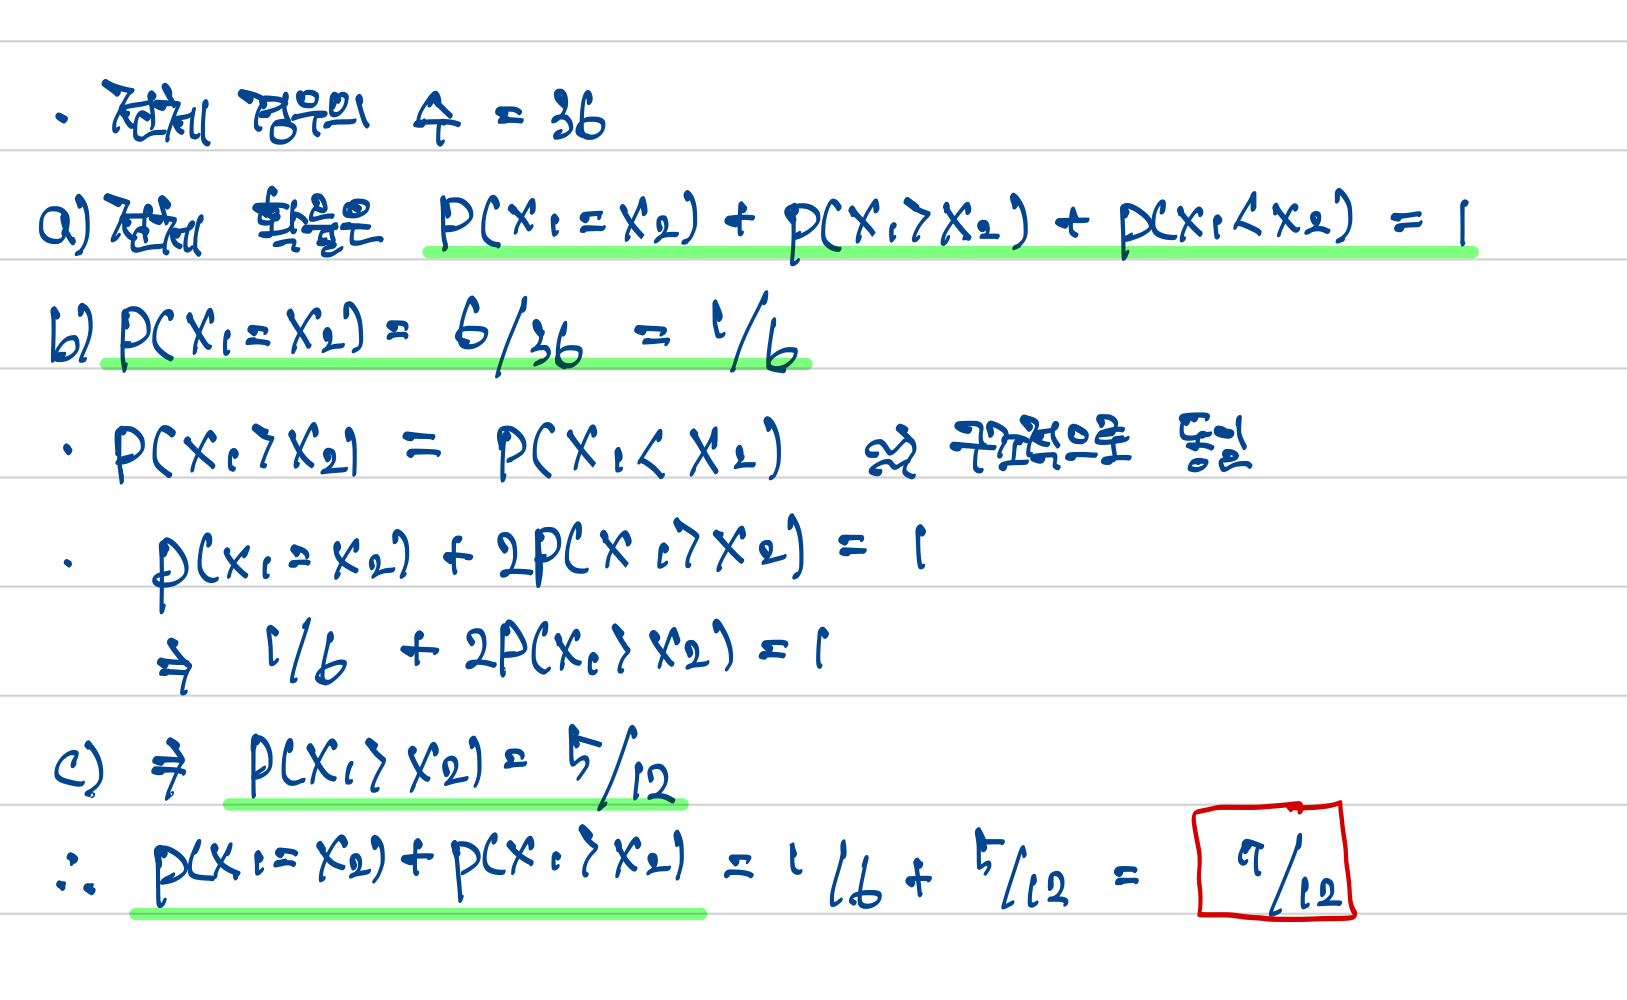 · 전체 경우의 수 = 36
a) 전체 확률은 P(X₁=X₂) + P(X₁>X₂) + P(X₁<X₂) = 1
b) P(X₁=X₂) = 6/36 = 1/6
· P(X₁>X₂) = P(X₁<X₂) 구조적으로 동일
· P(X₁=X₂) + 2P(X₁>X₂) = 1
⇒ 1/6 + 2P(X₁>X₂) = 1
c) ⇒ P(X₁>X₂) = 5/12
∴ P(X₁=X₂) + P(X₁>X₂) = 1/6 + 5/12 = 7/12